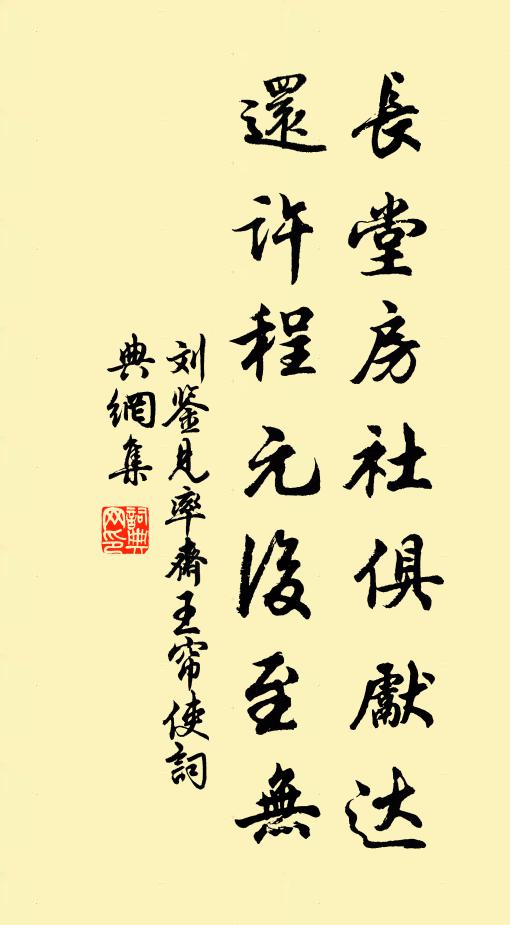 長堂房社俱獻达
還许程元後至無
刘鉴見率齋王帘使詞
典網集
詞典网印